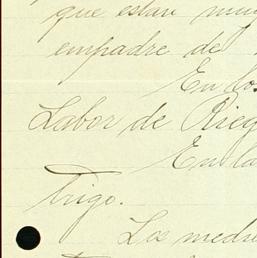 que estan muy
empadre de
En los
Labor de Rieg
En la
trigo.
Los medi